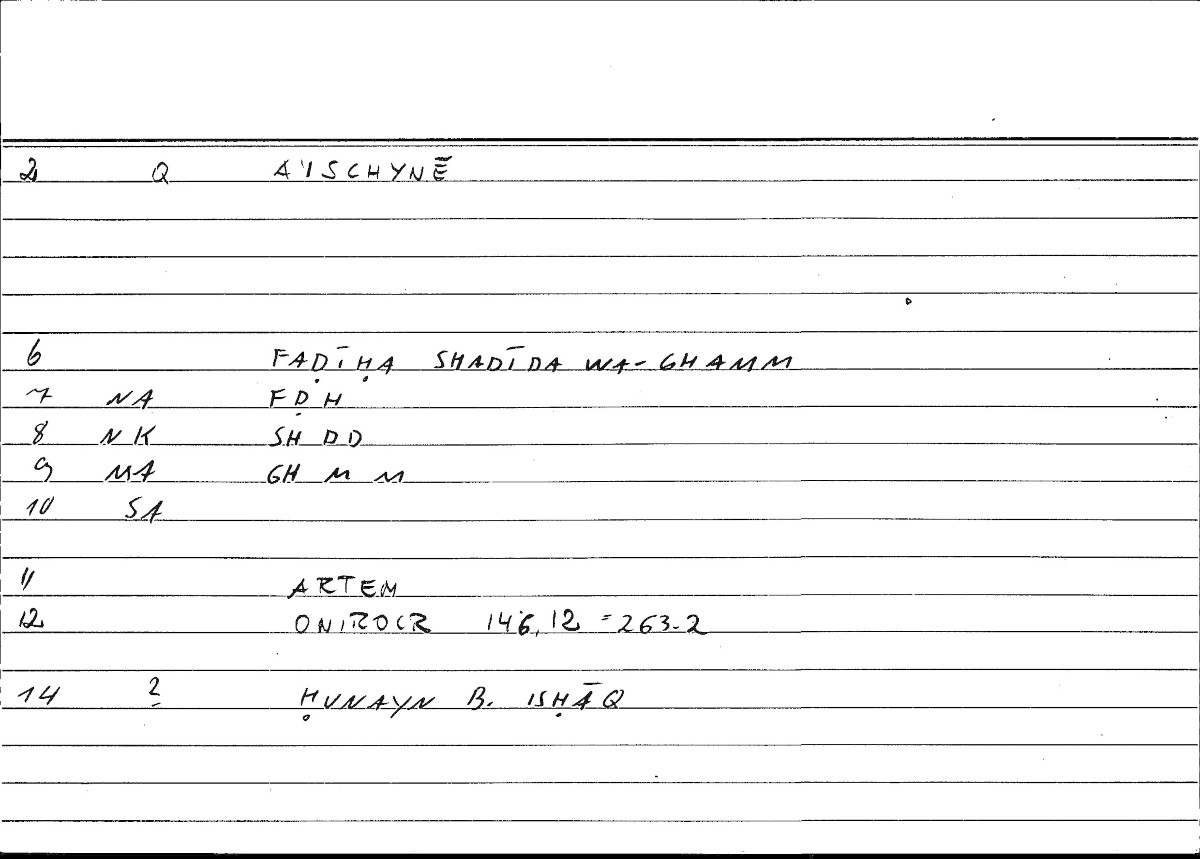 2 Q A'ISCHYNĒ
6 FAḌĪḤA SHADĪDA WA-GHAMM
7 NA FḌH
8 NK SH DD
9 MA GH M M
10 SA
11 ARTEM
12 ONIROCR 146,12 = 263-2
14 2 ḤUNAYN B. ISḤĀQ